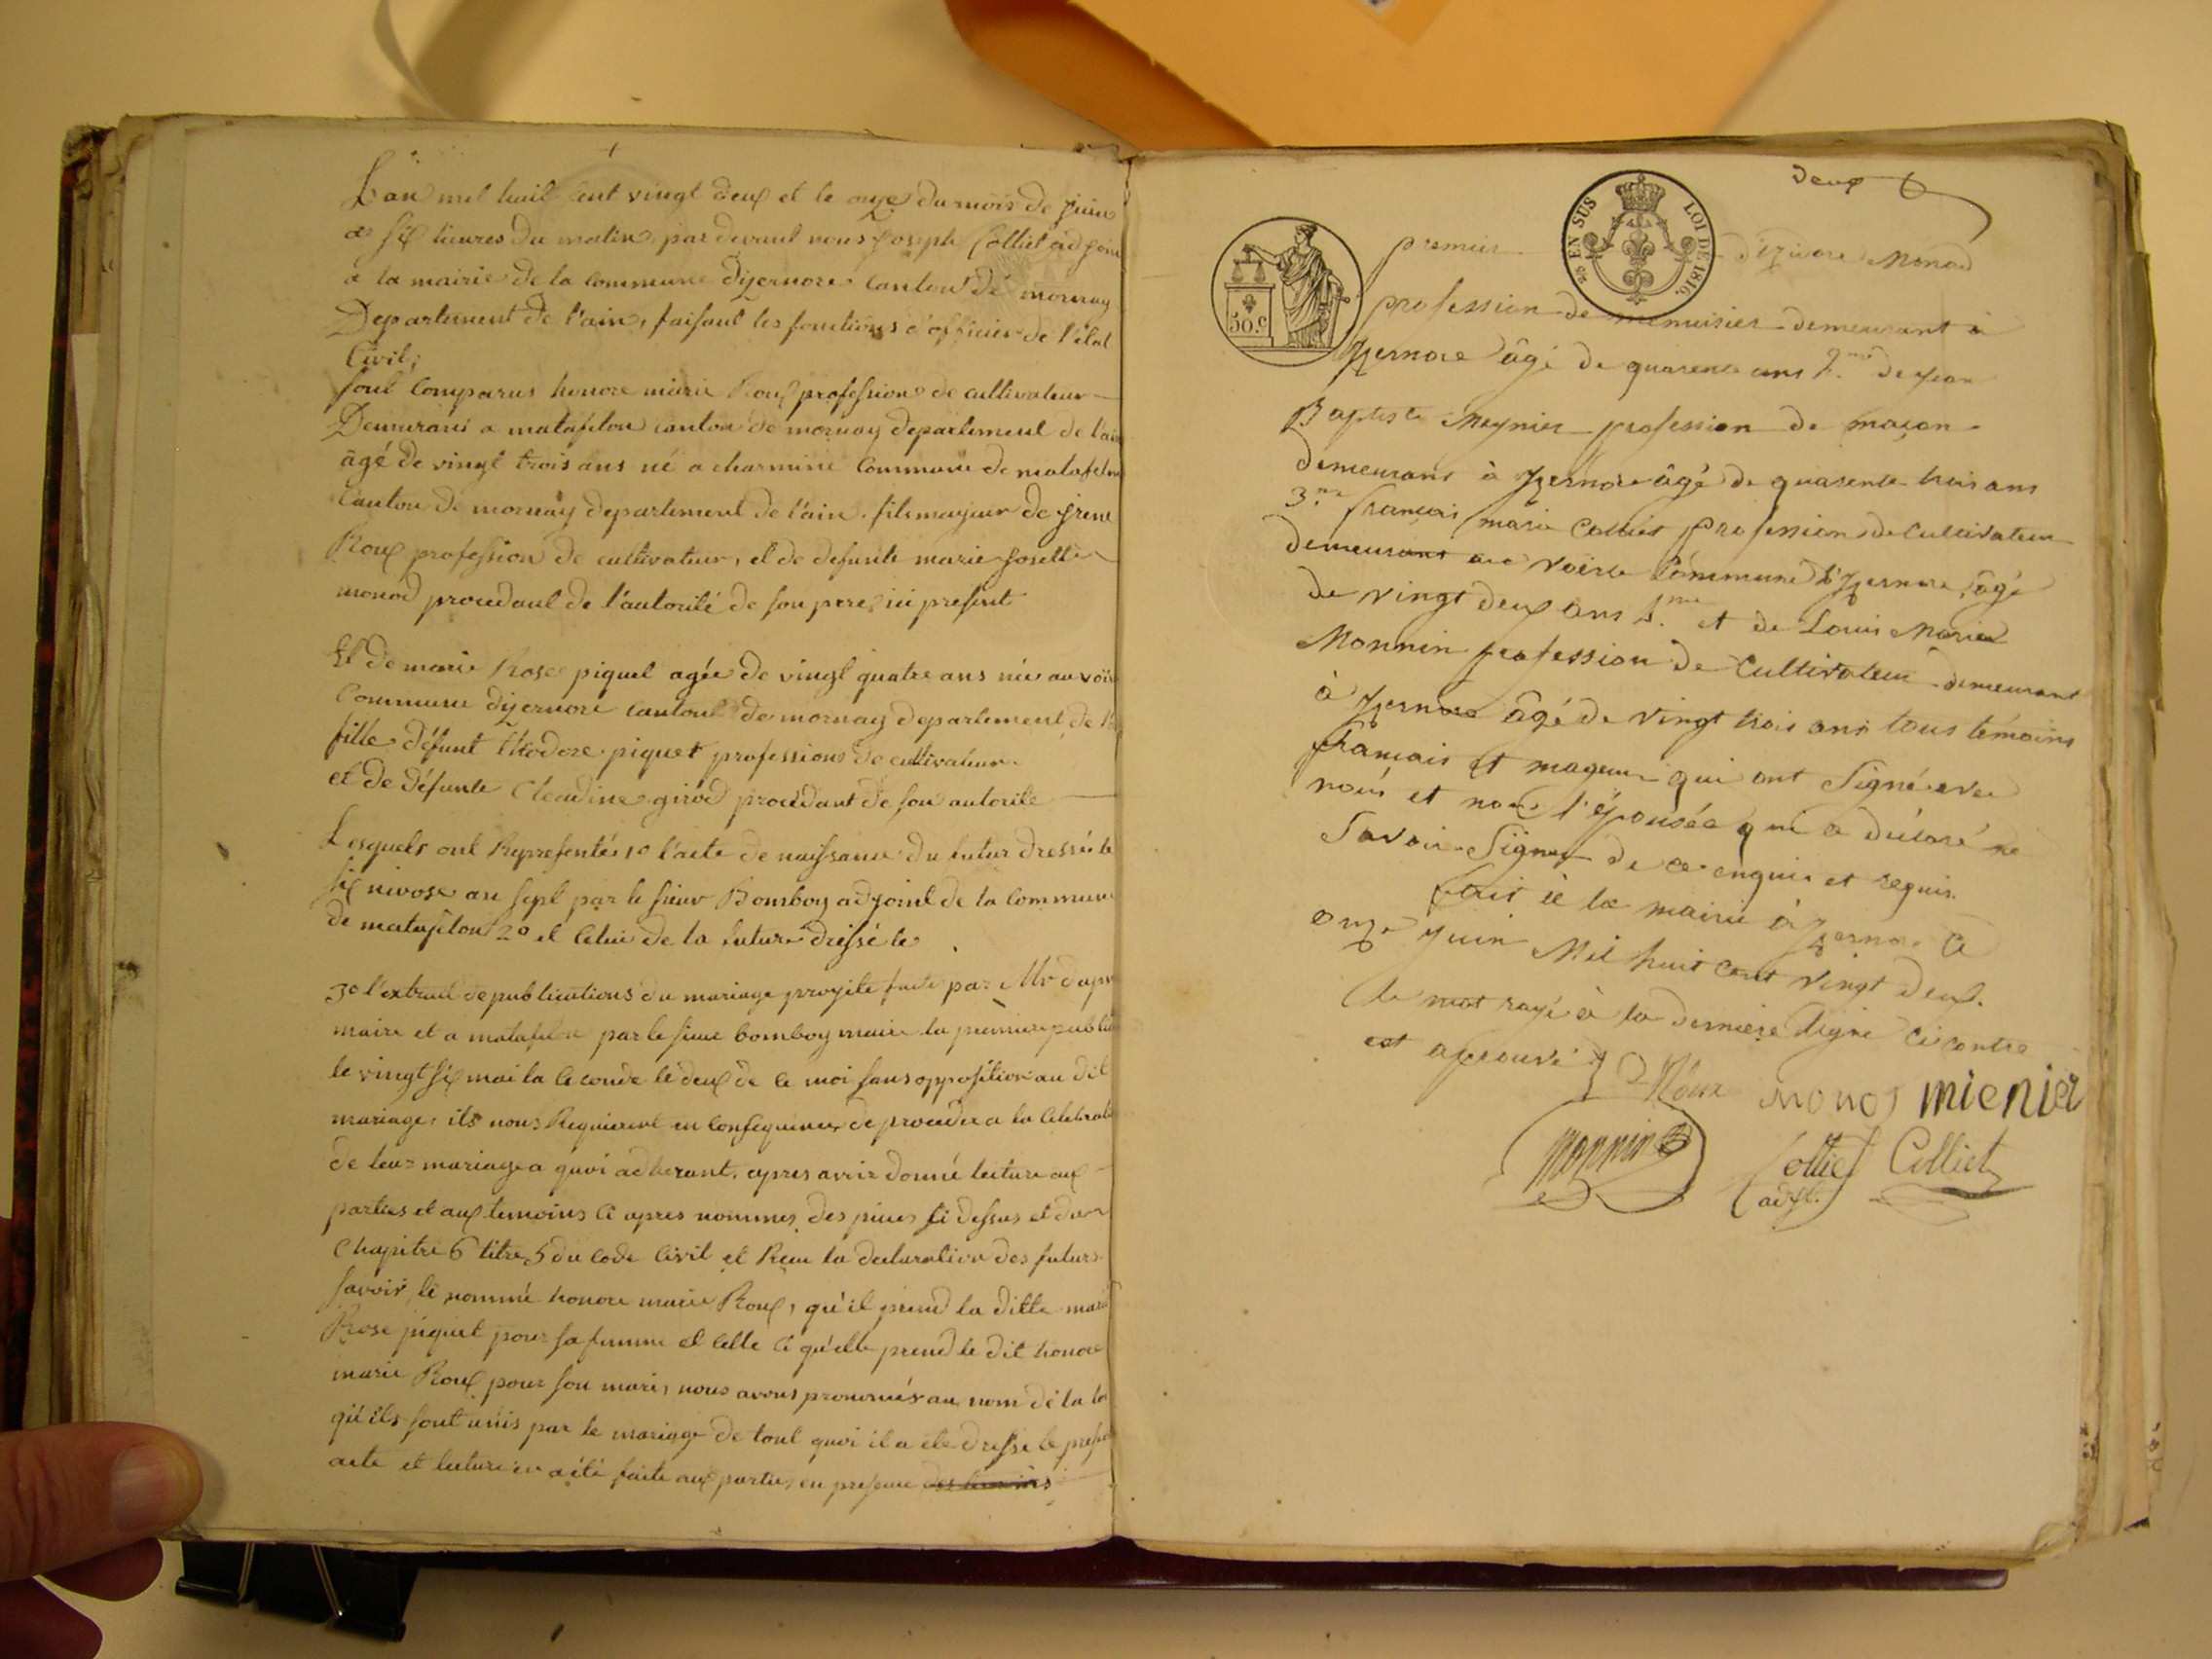 L'an mil huit cent vingt deux et le onze du mois de juin
a six heures du matin, par devant nous joseph Colliet adjoin
a la mairie de la commune d'yzernore canton de mornay
Departement de l'ain, faisant les fonctions d'officier de l'état
Civil;
sont Comparus honore marie Roux profession de cultivateur
Demurant a matafelon canton de mornay departement de l'ain
âgé de vingt trois ans né a charmine commune de matafelon
canton de mornay departement de l'ain. fils mageur de
Roux profession de cultivateur, et de defunte marie josette
monod procedant de l'autorité de son pere, ici present
Et de marie Rose piquet agée de vingt quatre ans née au voir
Commune d'yzernore canton de mornay departement de l'a
fille défunt théodore piquet profession de cultivateur
et de défunte Claudine girod procédant de son autorite
Lesquels ont Representés 1º l'acte de naissance du futur dressé le
six nivose an sept par le sieur Bomboy adjoint de la commune
de matafelon 2º et celui de la future dressé le
3º l'extrait de publications du mariage projeté faite par Mr
maire et a matafelon par le sieur bomboy maire la premiere public
le vingt six mai la seconde le deux de ce moi sans opposition au dit
mariage, ils nous Requierent en consequence de proceder a la celebrat
de leur mariage a quoi adherant. apres avoir donné lecture aux
parties et aux temoins ci apres nommés, des pieces ci dessus et du
Chapitre 6 titre 5 du code civil et Recu la declaration des futurs
savoir, le nommé honore marie Roux, qu'il prend la ditte marie
Rose piquet pour sa femme et celle ci qu'elle prend le dit honore
marie Roux pour son mari, nous avons prononcés au nom de la loi
qu'ils sont unis par le mariage de tout quoi il a été dressé le present
acte et lecture en a été faite aux parties, en presence des temoins
deux
premier d'izidore Monod
profession de menuisier demeurant à
Yzernore âgé de quarente ans 2.me de jean
Baptiste Meynier profession de maçon
demeurant à Yzernore âgé de quarente trois ans
3.me francois marie Colliet profession de Cultivateur
demeurant au voirle Commune d'Yzernore, âgé
de vingt deux ans 4.me et de Louis Marie
Monnin profession de Cultivateur demeurant
à Yzernore âgé de vingt trois ans tous témoins
français et mageur qui ont Signé avec
nous et non l'épousée qui a déclaré ne
Savoir Signer de ce enquis et requis.
fait à la mairie à Yzernore ce
onze juin Mil huit cent vingt deux.
le mot rayé à la derniere ligne ci contre
est aprouvé
50 c
25 EN SUS LOI DE 1816.
Roux monod mienier
monnin Colliet Colliet
adjt.